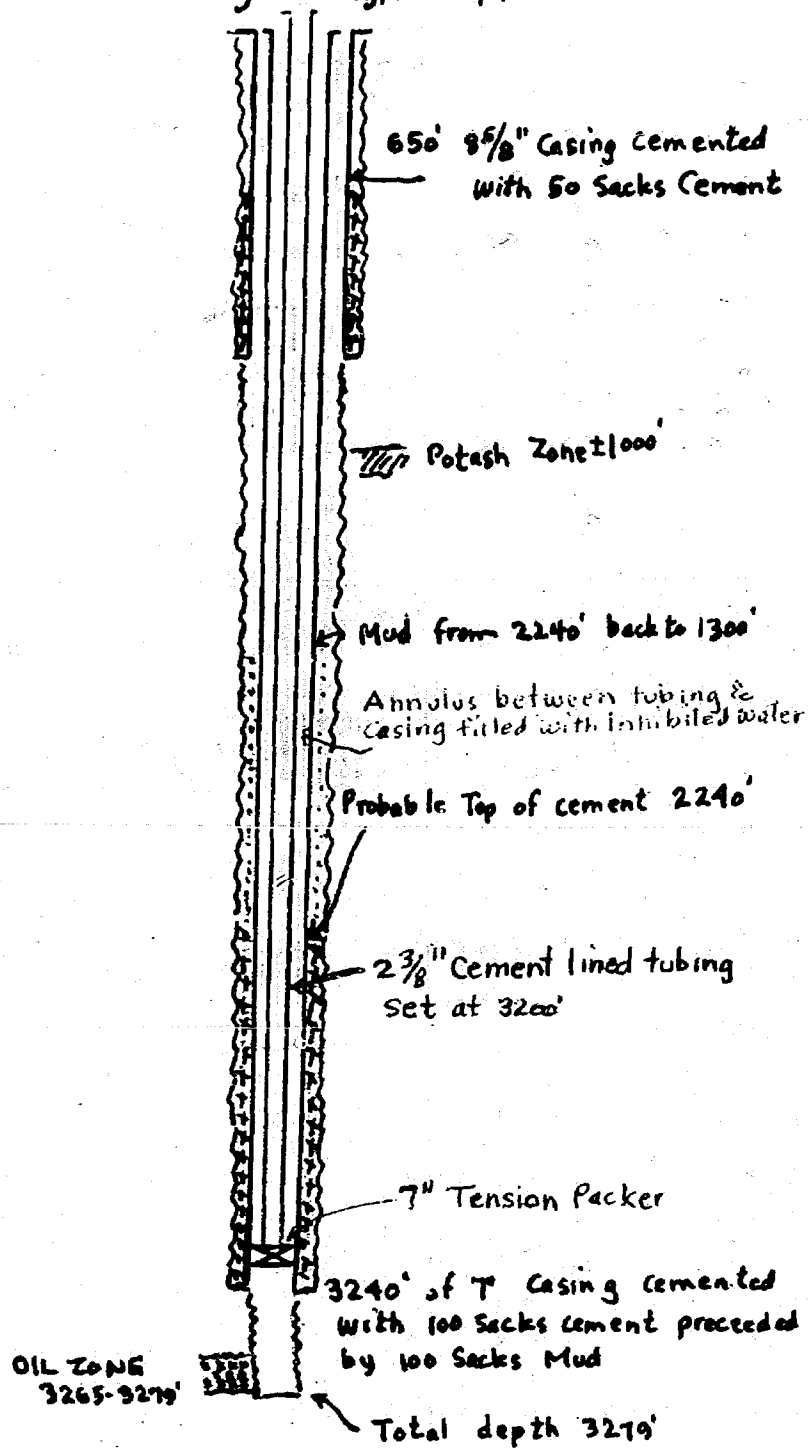 650' 8 5/8" Casing cemented
with 50 Sacks Cement
Potash Zone ±1000'
Mud from 2240' back to 1300'
Annulus between tubing &
Casing filled with inhibited water
Probable Top of cement 2240'
2 3/8" Cement lined tubing
Set at 3200'
7" Tension Packer
3240' of 7" Casing cemented
with 100 Sacks cement preceeded
by 100 Sacks Mud
OIL ZONE
3265-3279'
Total depth 3279'